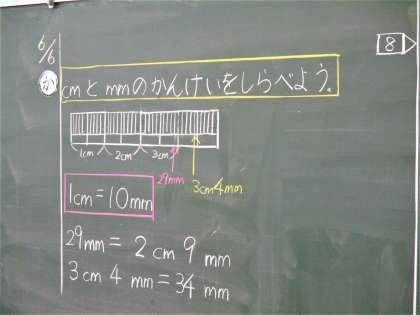 6/6
8
か cmとmmのかんけいをしらべよう。
1cm 2cm 3cm
29mm
3cm4mm
1cm=10mm
29mm= 2cm 9mm
3cm 4mm=34mm